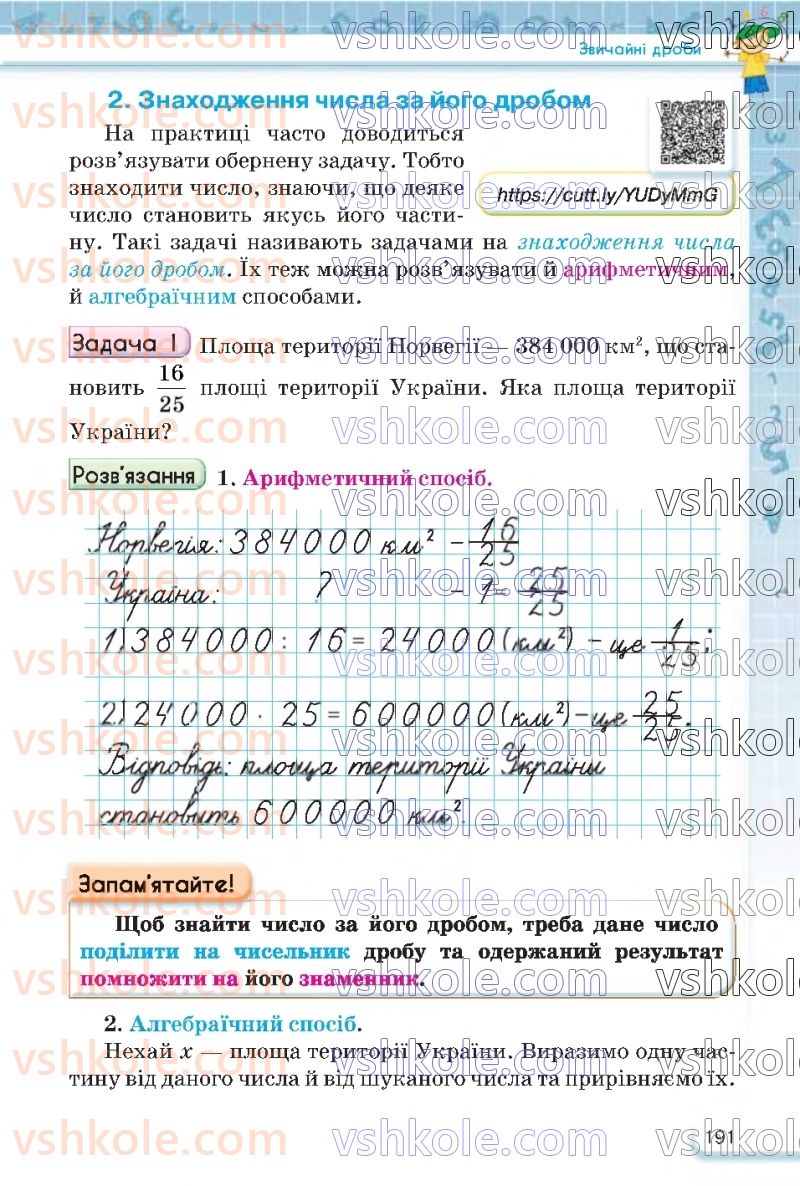 Звичайні дроби
2. Знаходження числа за його дробом
На практиці часто доводиться
розв’язувати обернену задачу. Тобто
знаходити число, знаючи, що деяке
https://cutt.ly/YUDyMmG
число становить якусь його части-
ну. Такі задачі називають задачами на знаходження числа
за його дробом. Їх теж можна розв’язувати й арифметичним,
й алгебраїчним способами.
Задача 1 Площа території Норвегії — 384 000 км², що ста-
новить 16/25 площі території України. Яка площа території
України?
Розв’язання 1. Арифметичний спосіб.
Норвегія: 384000 км² – 16/25
Україна: ? – 1 = 25/25
1) 384000 : 16 = 24000 (км²) – це 1/25;
2) 24000 · 25 = 600000 (км²) – це 25/25.
Відповідь: площа території України
становить 600000 км².
Запам’ятайте!
Щоб знайти число за його дробом, треба дане число
поділити на чисельник дробу та одержаний результат
помножити на його знаменник.
2. Алгебраїчний спосіб.
Нехай x — площа території України. Виразимо одну час-
тину від даного числа й від шуканого числа та прирівняємо їх.
191
vshkole.com